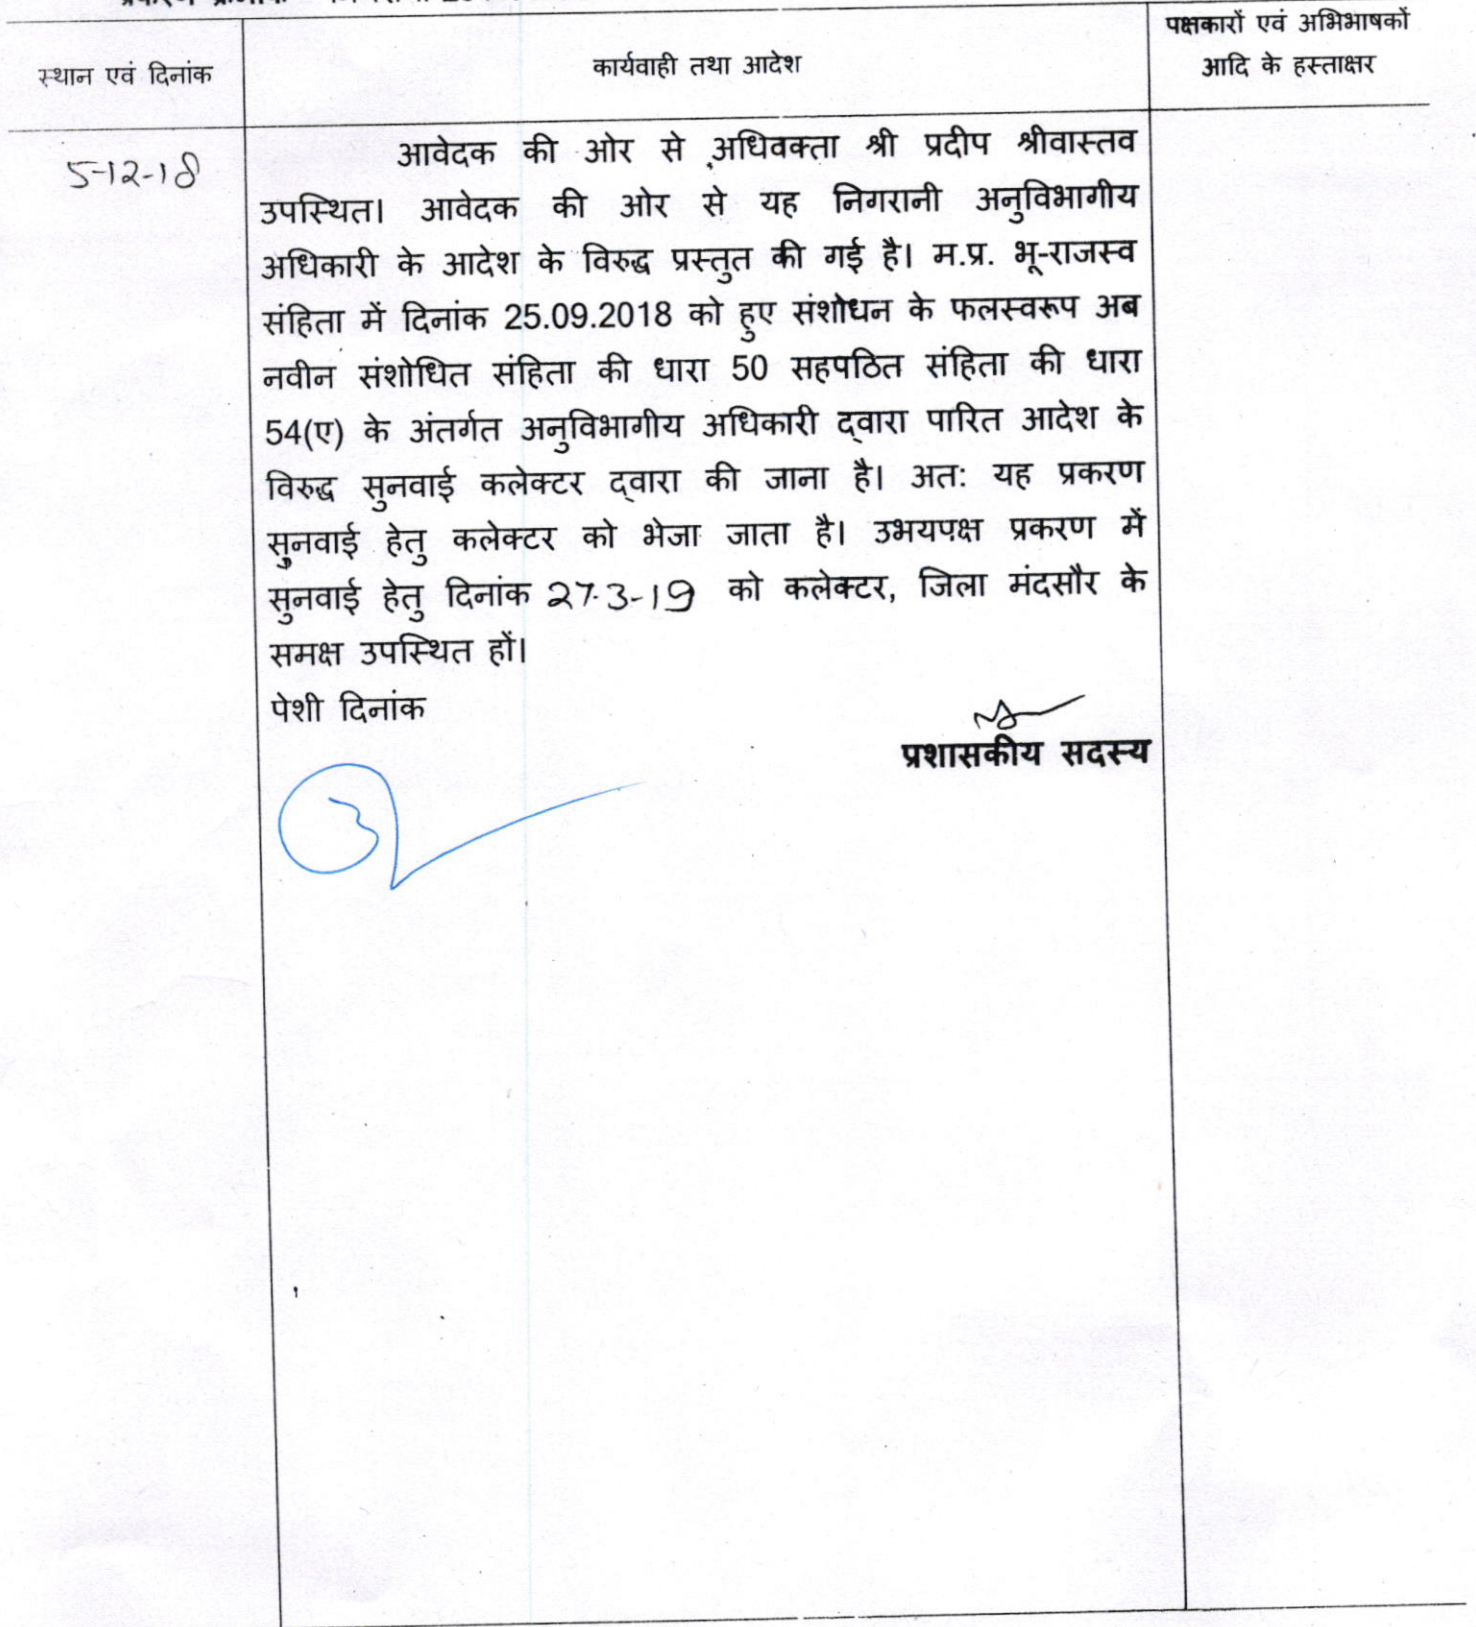 स्थान एवं दिनांक
कार्यवाही तथा आदेश
पक्षकारों एवं अभिभाषकों
आदि के हस्ताक्षर
5-12-18
आवेदक की ओर से अधिवक्ता श्री प्रदीप श्रीवास्तव
उपस्थित। आवेदक की ओर से यह निगरानी अनुविभागीय
अधिकारी के आदेश के विरुद्ध प्रस्तुत की गई है। म.प्र. भू-राजस्व
संहिता में दिनांक 25.09.2018 को हुए संशोधन के फलस्वरूप अब
नवीन संशोधित संहिता की धारा 50 सहपठित संहिता की धारा
54(ए) के अंतर्गत अनुविभागीय अधिकारी द्वारा पारित आदेश के
विरुद्ध सुनवाई कलेक्टर द्वारा की जाना है। अत: यह प्रकरण
सुनवाई हेतु कलेक्टर को भेजा जाता है। उभयपक्ष प्रकरण में
सुनवाई हेतु दिनांक 27-3-19 को कलेक्टर, जिला मंदसौर के
समक्ष उपस्थित हों।
पेशी दिनांक
प्रशासकीय सदस्य